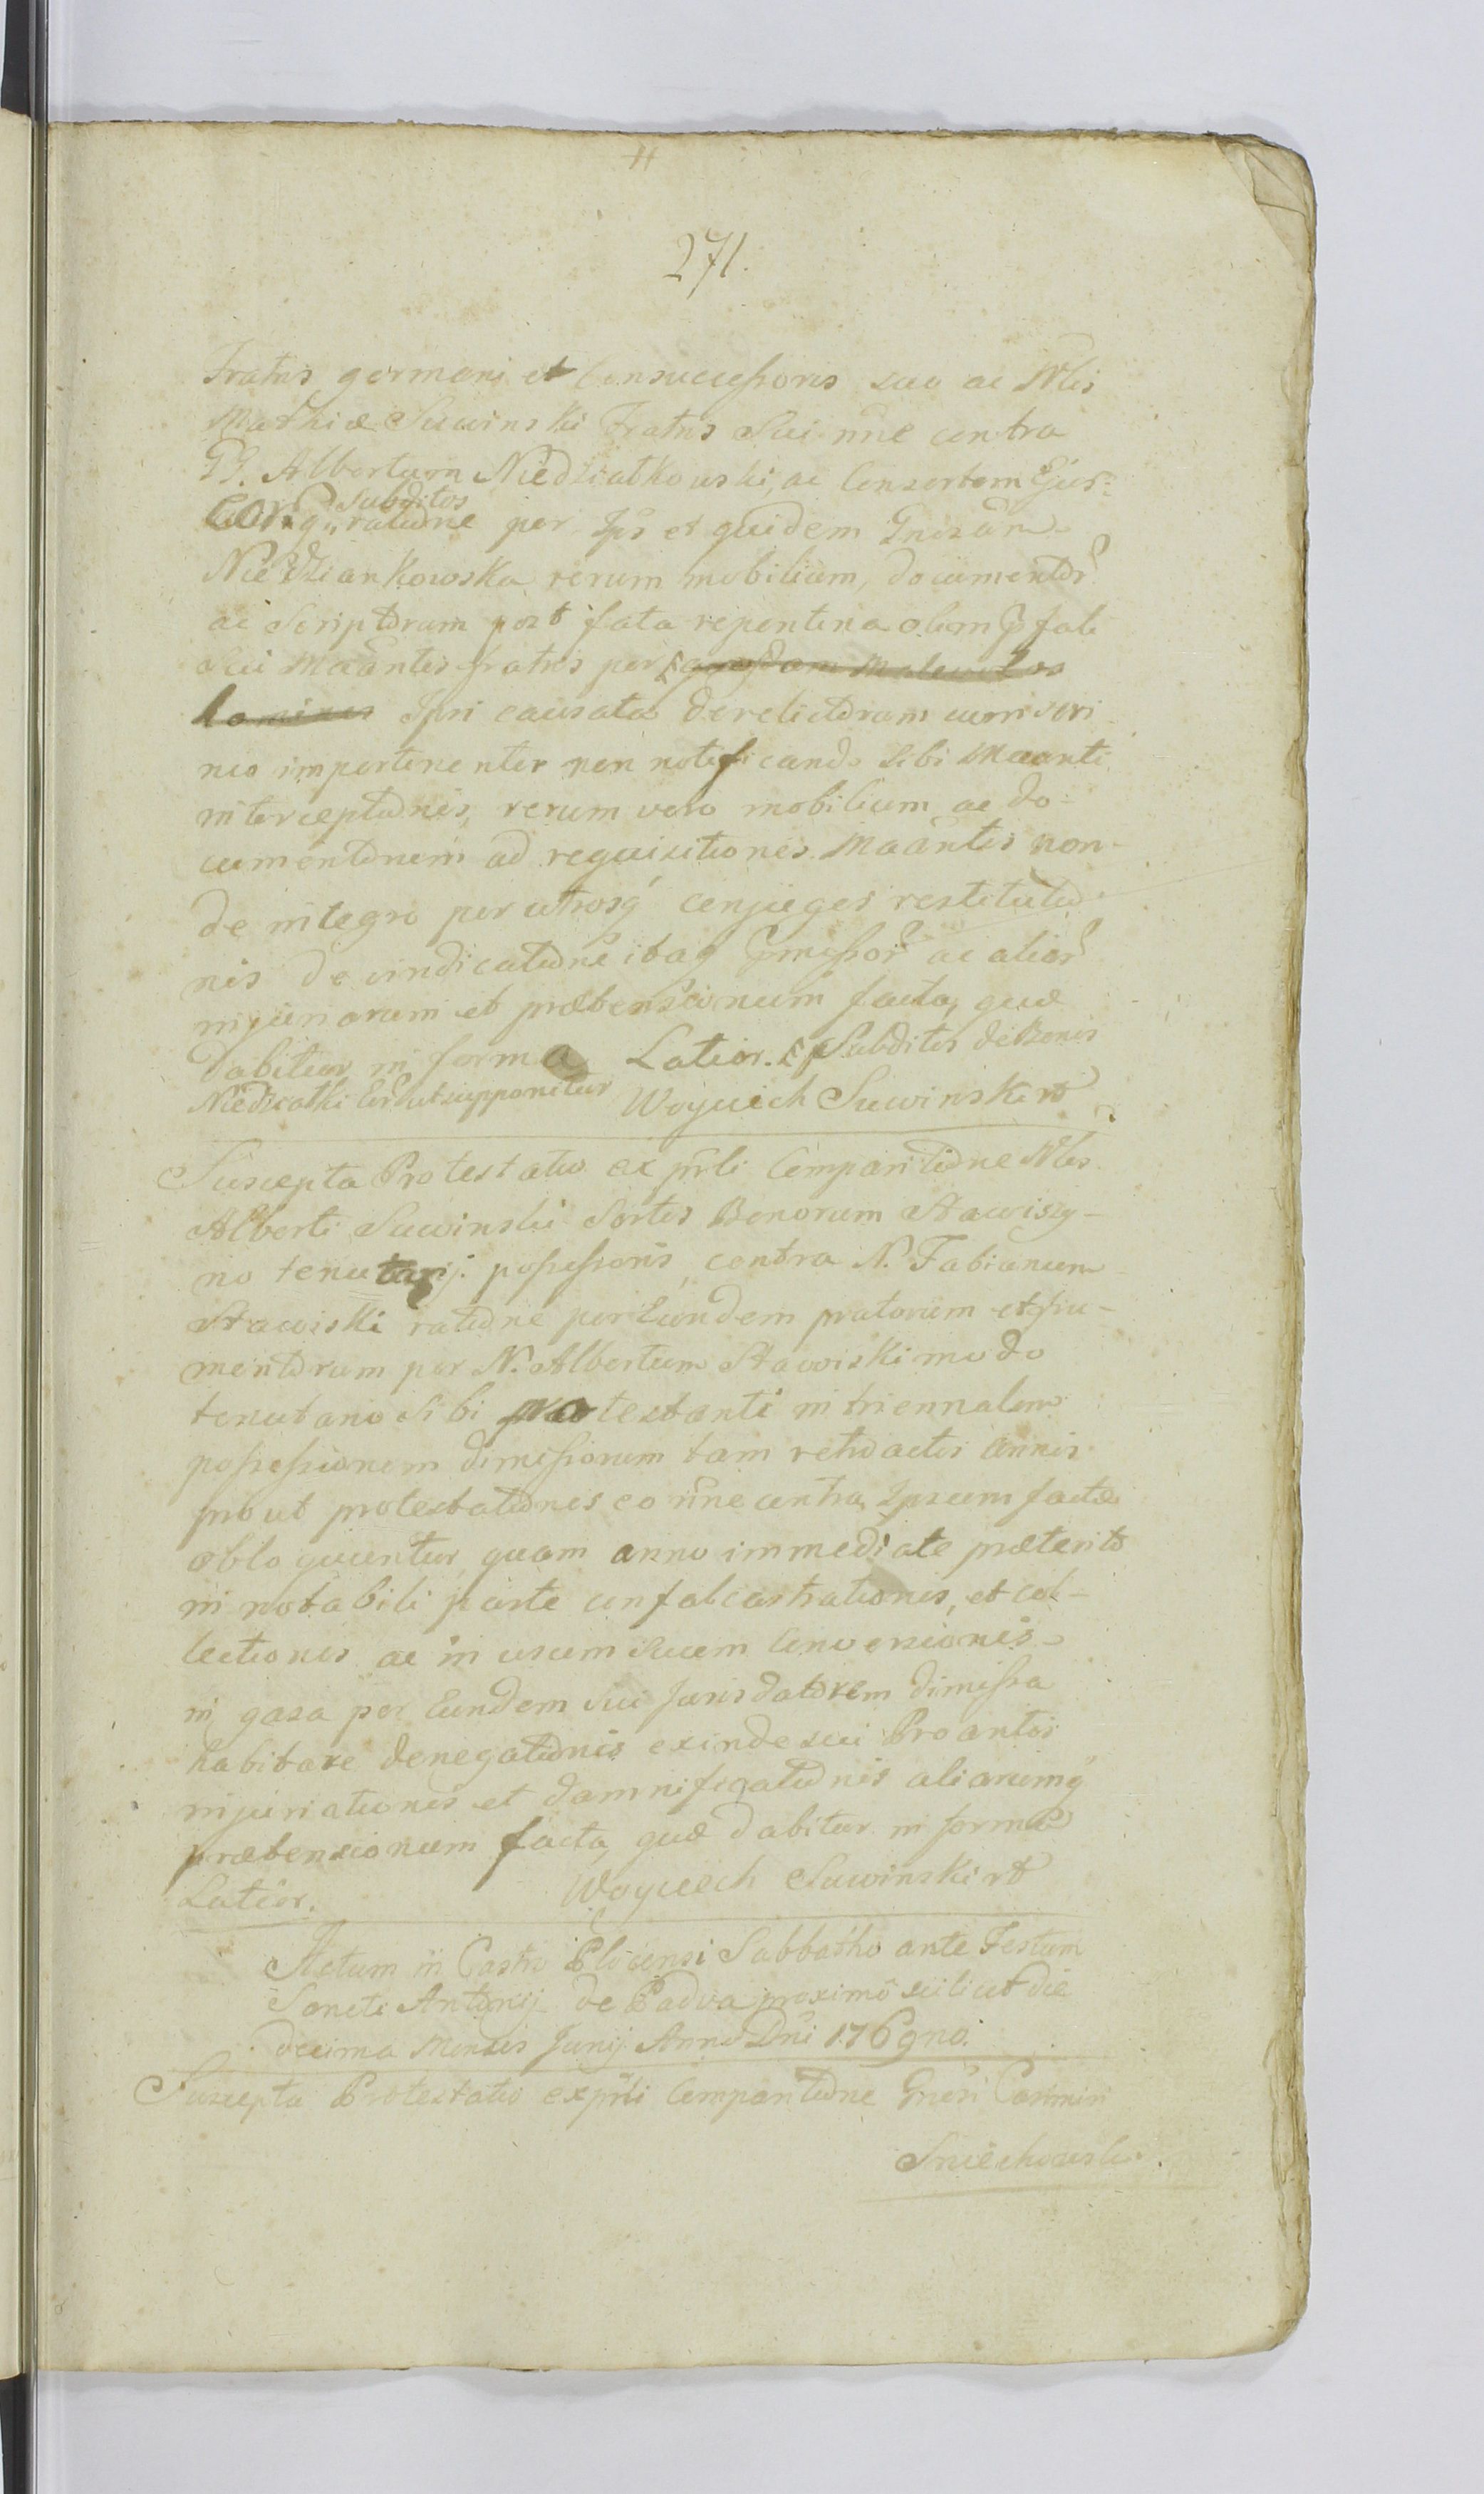 271.
Fratris germani et Consuccessoris suo ac Nlis
Mathiæ Suwinski Fratris Sui nne contra
Albertum Niedziałkowski, ac Consortem Ejus
Subditos
ratióne per Ips et quidem Gnosam
Niedziankowska rerum mobilium, documentor
ac Scriptorum post fata repentina olim fati
Sui Maantis fratris per quosdam malevolos
homines Ipsi causata derelictorum cum scri
nio impertinenter non notificando Sibi Maanti
interceptiónis, rerum vero mobilium ac do-
cumentorum ad requisitiones Maantis non
de integro per utrosq conjuges restitutió
nis de vindicatióne itaq pmissor ac alior
injuriarum et prætensionum facta, quæ
dabitur in forma Latior. Subditos de Bonis
Niedziałki ut supponitur Woyciech Suwinski
Suscepta Protestatio ex prli Comparitióne Nlis
Alberti Suwinski Sortis Bonorum Stawiszy-
no tenutarij possessoris, contra N. Fabianum
Stawiski ratióne per Eundem pratorum et fru-
mentorum per N. Albertum Stawiski modo
tenutario Sibi protestanti in triennalem
possessionem dimissorum tam retroactis annis
prout protestatiónes eo nne contra Ipsum factæ
obloquuntur, quam anno immediate præterito
in notabili parte confalcastrationis, et col-
lectionis ac in usum suum Conversionis
in gaza per Eundem Sui Juris datorem dimissa
habitare denegatiónis exinde sui Proantis
injuriationis et damnificatiónis aliarumq
prætensionum facta, quæ dabitur in forma
Latior. Woyciech Suwinski
Actum in Castro Plocensi Sabbatho ante Festum
Sancti Antonij de Padua proximo scilicet die
decima Mensis Junij Anno Dni 1769no.
Suscepta Protestatio ex prli Comparitióne Gnesi Casimiri